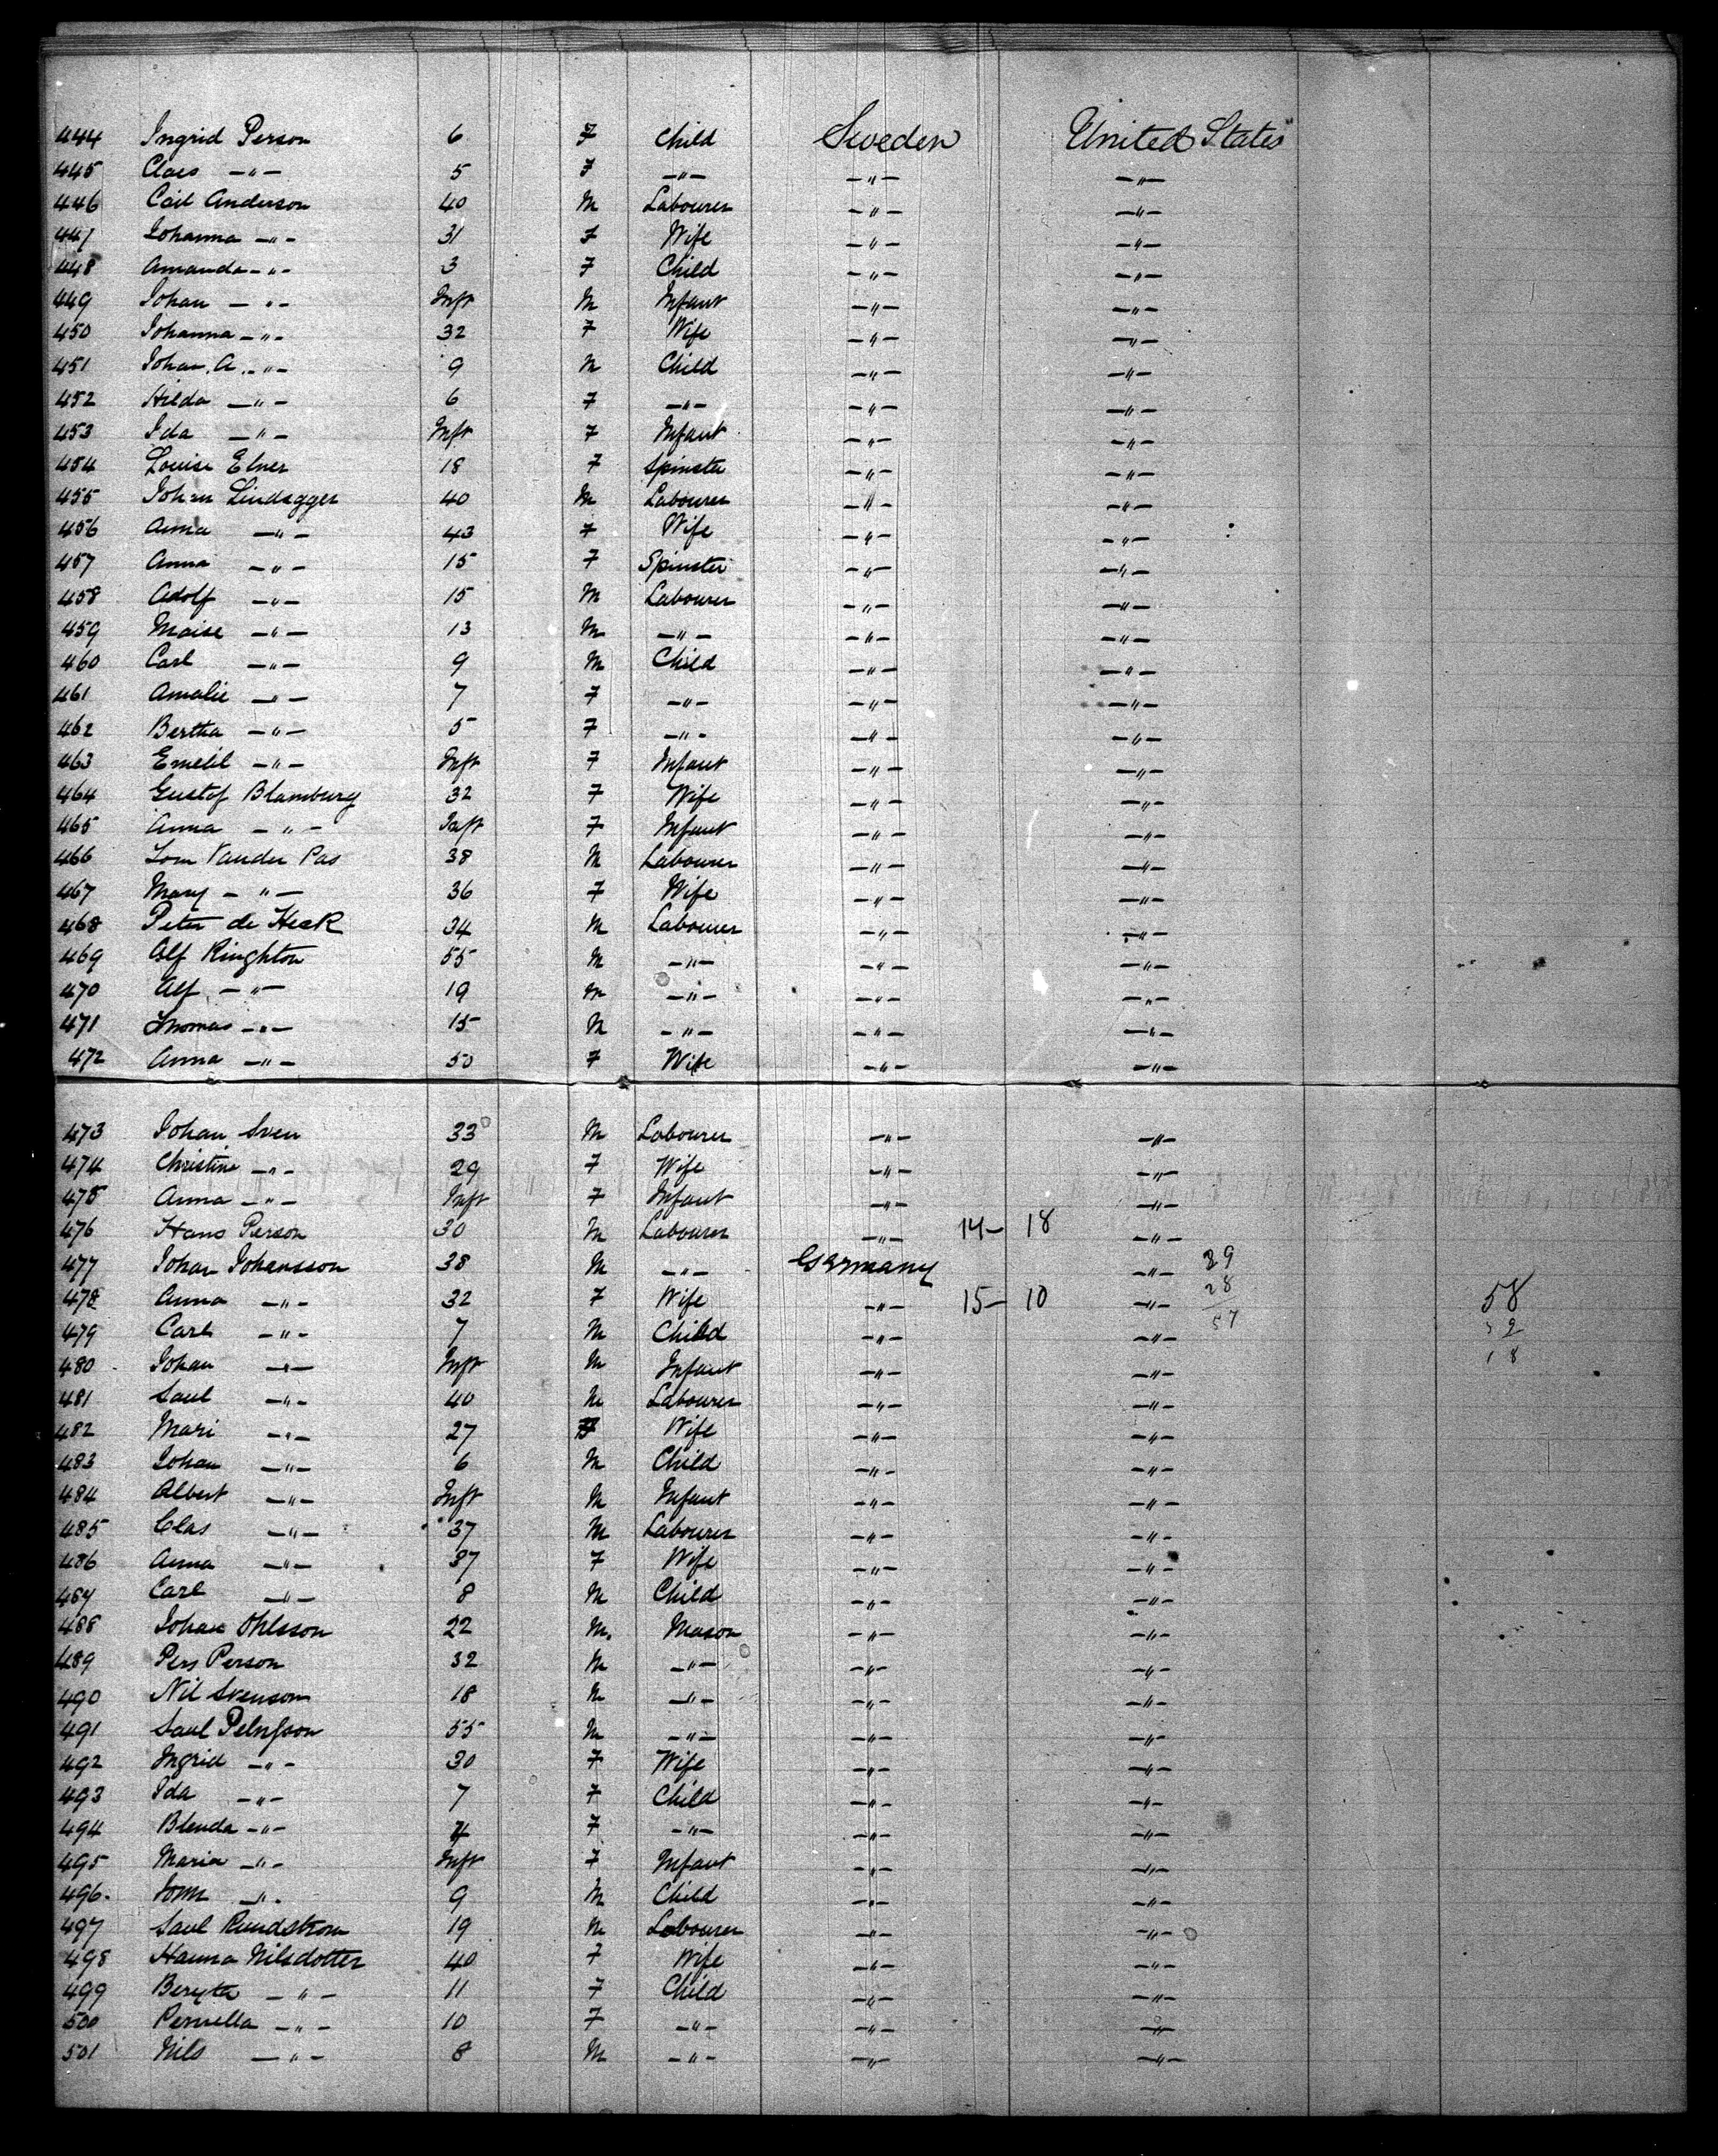 444 Ingrid Person 6 F Child Sweden United States
445 Claes -"- 5 F -"- -"- -"-
446 Carl Anderson 40 M Labourer -"- -"-
447 Johanna -"- 31 F Wife -"- -"-
448 Amanda -"- 3 F Child -"- -"-
449 Johan -"- Inft M Infant -"- -"-
450 Johanna -"- 32 F Wife -"- -"-
451 Johan. A. -"- 9 M Child -"- -"-
452 Hilda -"- 6 F -"- -"- -"-
453 Ida -"- Inft F Infant -"- -"-
454 Louise Elner 18 F Spinster -"- -"-
455 Johan Lindegger 40 M Labourer -"- -"-
456 Anna -"- 43 F Wife -"- -"-
457 Anna -"- 15 F Spinster -"- -"-
458 Adolf -"- 15 M Labourer -"- -"-
459 Moise -"- 13 M -"- -"- -"-
460 Carl -"- 9 M Child -"- -"-
461 Amalie -"- 7 F -"- -"- -"-
462 Bertha -"- 5 F -"- -"- -"-
463 Emelil -"- Inft F Infant -"- -"-
464 Gustof Blamburg 32 F Wife -"- -"-
465 Anna -"- Inft F Infant -"- -"-
466 Tom Vander Pas 38 M Labourer -"- -"-
467 Mary -"- 36 F Wife -"- -"-
468 Peter de Heck 34 M Labourer -"- -"-
469 Alf Ringhton 55 M -"- -"- -"-
470 Alf -"- 19 M -"- -"- -"-
471 Thomas -"- 15 M -"- -"- -"-
472 Anna -"- 50 F Wife -"- -"-
473 Johan Sven 33 M Labourer -"- -"-
474 Christine -"- 29 F Wife -"- -"-
475 Anna -"- Inft F Infant -"- -"-
476 Hans Person 30 M Labourer -"- 14- 18 -"-
477 Johan Johansson 38 M -"- Germany -"- 29
478 Anna -"- 32 F Wife -"- 15- 10 -"- 28 58
479 Carl -"- 7 M Child -"- -"- 57
480 Johan -"- Inft M Infant -"- -"- 18
481 Saul -"- 40 M Labourer -"- -"-
482 Mari -"- 27 F Wife -"- -"-
483 Johan -"- 6 M Child -"- -"-
484 Albert -"- Inft M Infant -"- -"-
485 Clas -"- 37 M Labourer -"- -"-
486 Anna -"- 37 F Wife -"- -"-
487 Carl -"- 8 M Child -"- -"-
488 Johan Ohlsson 22 M. Mason -"- -"-
489 Pers Person 32 M -"- -"- -"-
490 Nil Svenson 18 M -"- -"- -"-
491 Saul 55 M -"- -"- -"-
492 Ingrid -"- 30 F Wife -"- -"-
493 Ida -"- 7 F Child -"- -"-
494 Blenda -"- 4 F -"- -"- -"-
495 Maria -"- Inft F Infant -"- -"-
496. John -"- 9 M Child -"- -"-
497 Saul Rundstrom 19 M Labourer -"- -"-
498 Hanna Nilsdotter 40 F Wife -"- -"-
499 Beryta -"- 11 F Child -"- -"-
500 Pernella -"- 10 F -"- -"- -"-
501 Nils -"- 8 M -"- -"- -"-